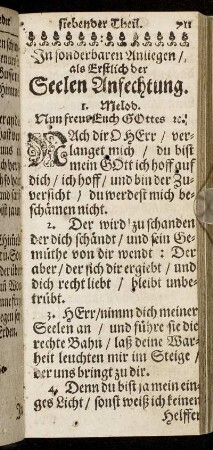 siebender Theil. 711
In sonderbaren Anliegen /
als Erstlich der
Seelen Anfechtung.
1. Melod.
Nun freut Euch GOttes ꝛc.
NAch dir O HErr / ver-
langet mich / du bist
mein GOtt ich hoff auf
dich / ich hoff / und bin der Zu-
versicht / du werdest mich be-
schämen nicht.
2. Der wird zu schanden
der dich schändt / und sein Ge-
müthe von dir wendt : Der
aber / der sich dir ergiebt / und
dich recht liebt / bleibt unbe-
trübt.
3. HErr / nimm dich meiner
Seelen an / und führe sie die
rechte Bahn / laß deine War-
heit leuchten mir im Steige /
der uns bringt zu dir.
4. Denn du bist ja mein ein-
ges Licht / sonst weiß ich keinen
Helffer